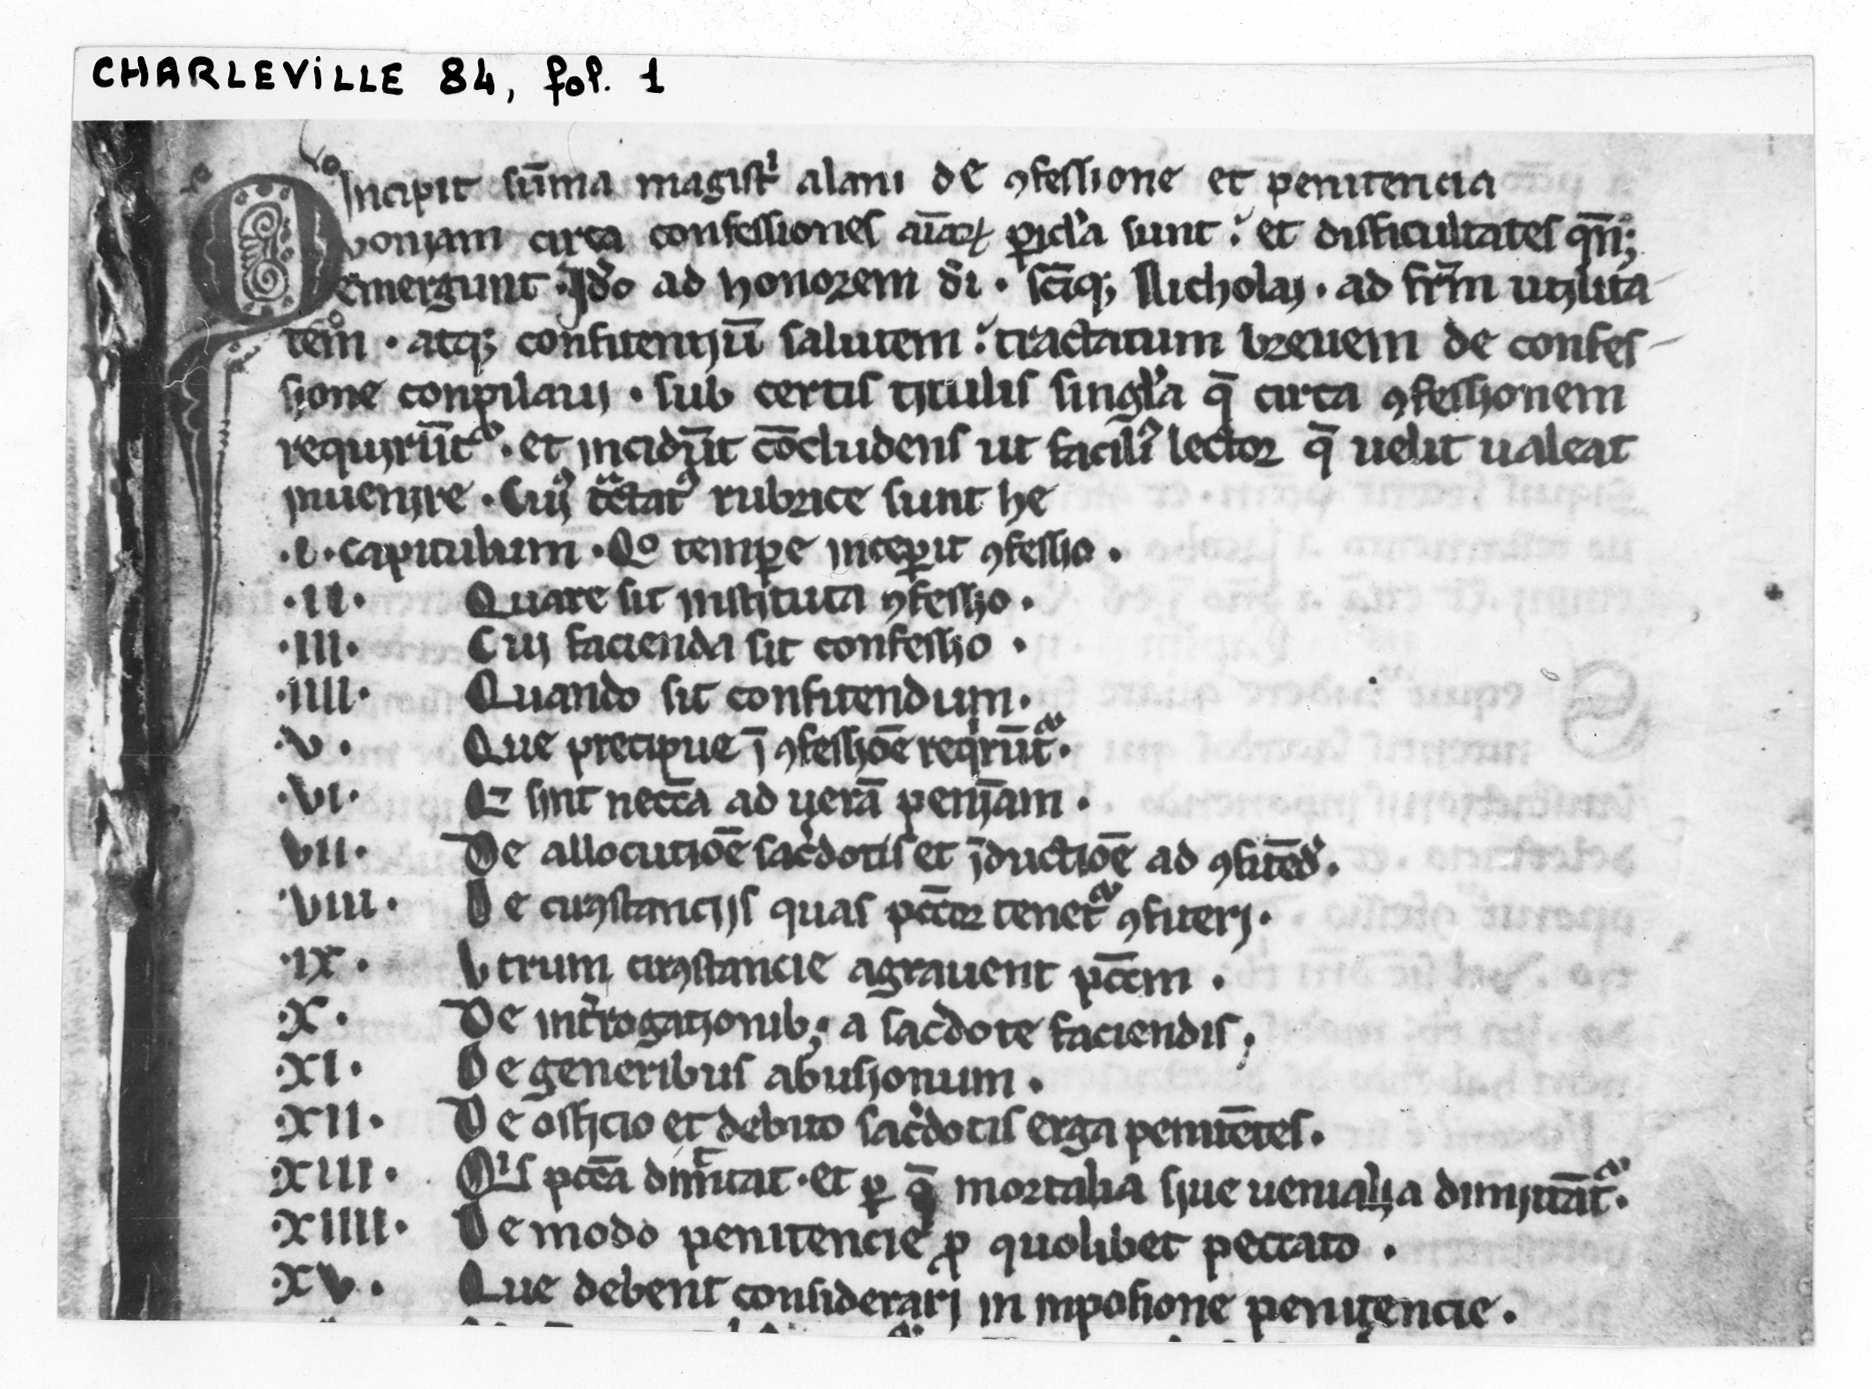 CHARLEVILLE 84, fol. 1
Incipit sūma magistⁱ alani de ꝯfessione et penitencia
Qvoniam circa confessiones aīaꝝ ꝑicl'a sunt et difficultates qn̄;
emergunt · Ido ad honorem di · scīq; Nicholai · ad frm̄ utilita
tem · atq; confitentiū salutem tractatum breuem de confes-
sione conpilaui · sub certis titulis singl'a q̄ circa ꝯfessionem
requirūt᷑ · et incidūt cōcludens ut facili᷒ lector q̄ uelit ualeat
inuenire · Cui᷒ tͣctat᷒ rubrice sunt he
·I· Capitulum · Qo temꝑe inceꝑit ꝯfessio ·
·II· Quare sit instituta ꝯfessio ·
·III· Cui facienda sit confessio ·
·IIII· Quando sit confitendum ·
·V· Que precipue ī ꝯfessiōe reqⁱrūt᷑ ·
·VI· Q sint neccā ad uerā penīam ·
VII· De allocutiōe sac̉dotis et īductiōe ad ꝯfitēd' ·
VIII· De circꝯstanciis quas pcc̄or tenet᷑ ꝯfiteri ·
·IX· Vtrum circꝯstancie agrauent pcc̄m ·
·X· De int̉rogationib; a sac̉dote faciendis;
·XI· De generibus abusionum ·
·XII· De officio et debito sac̉dotis erga penitētes ·
·XIII· Qⁱs pcc̄a dimittat · et ꝑ q̄ mortalia siue uenialia dimittāt᷑ ·
·XIIII· De modo penitencie ꝓ quolibet peccato ·
·XV· Que debent considerari in inpositione penitencie ·